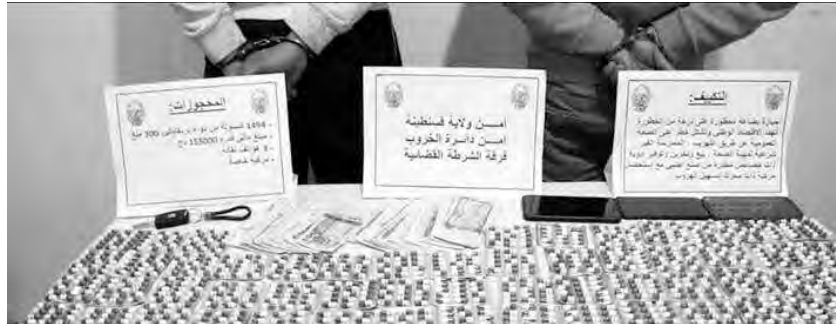 المحجوزات:
- 1494 كبسولة من دواء بريغابالين 300 ملغ
- مبلغ مالي قدره 155000 دج
- 3 هواتف نقالة
- مركبة خاصة
أمــن ولاية قسنطينة
أمــن دائــرة الخروب
فرقة الشرطة القضائية
التكييف:
حيازة بضاعة محظورة على درجة من الخطورة
تهدد الاقتصاد الوطني وتشكل خطر على الصحة
العمومية عن طريق التهريب ، الممارسة الغير
شرعية لمهنة الصحة ، بيع وتخزين وتوفير أدوية
ذات خصائص مخدرة من صنع أجنبي مع استعمال
مركبة ذات محرك لتسهيل الهروب